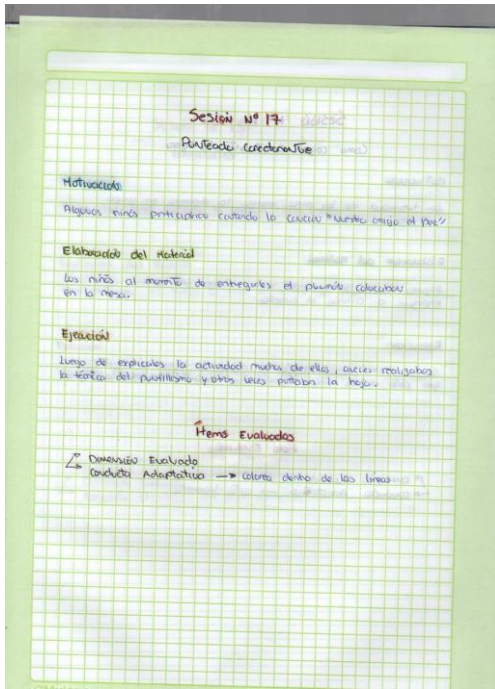 Sesión Nº 17
Punteado Correctamente
Motivación
Algunos niños participaron cantando la canción "nuestro amigo el pez"
Elaboración del Material
Los niños al momento de entregarles el plumón colocaban
en la mesa.
Ejecución
Luego de explicarles la actividad muchos de ellos, veces realizaban
la técnica del puntillismo y otras veces pintaban la hoja.
Ítems Evaluados
Dimensión Evaluado
Conducta Adaptativa → Colorea dentro de las líneas